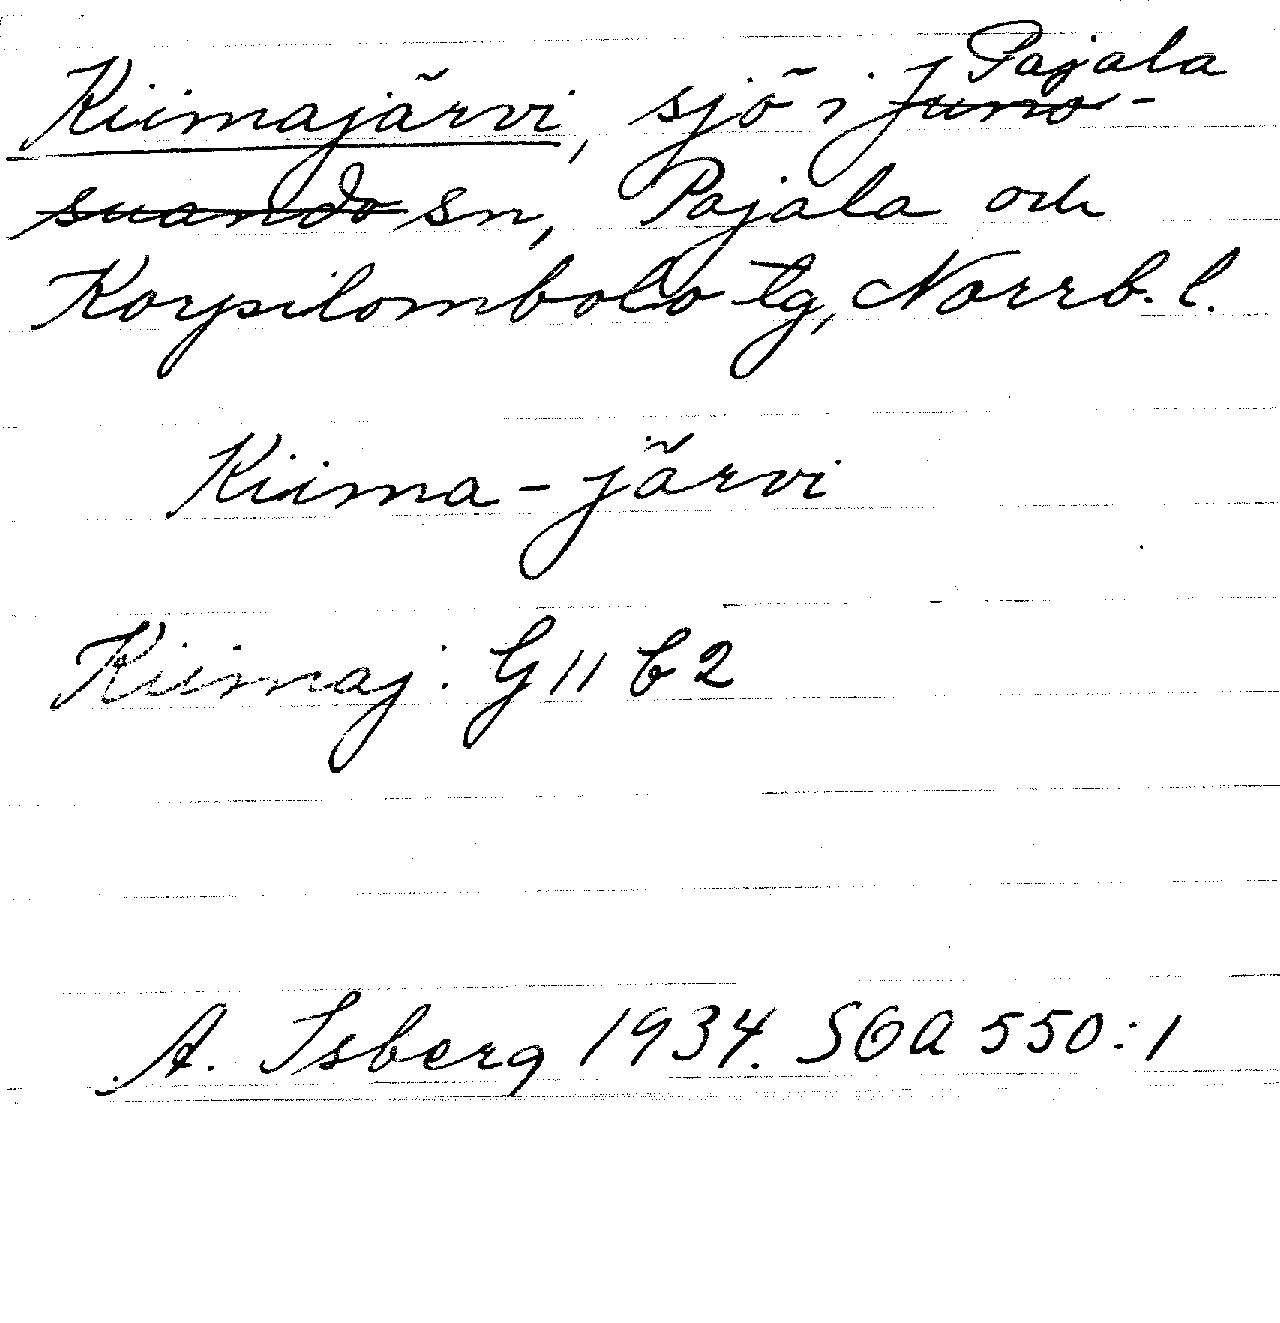 Kiimajärvi, sjö i Juno- Pajala
suando sn, Pajala och
Korpilombolo tg, Norrb. l.
Kiima-järvi
Kiimaj: G 11 b 2
A. Isberg 1934. SOA 550:1